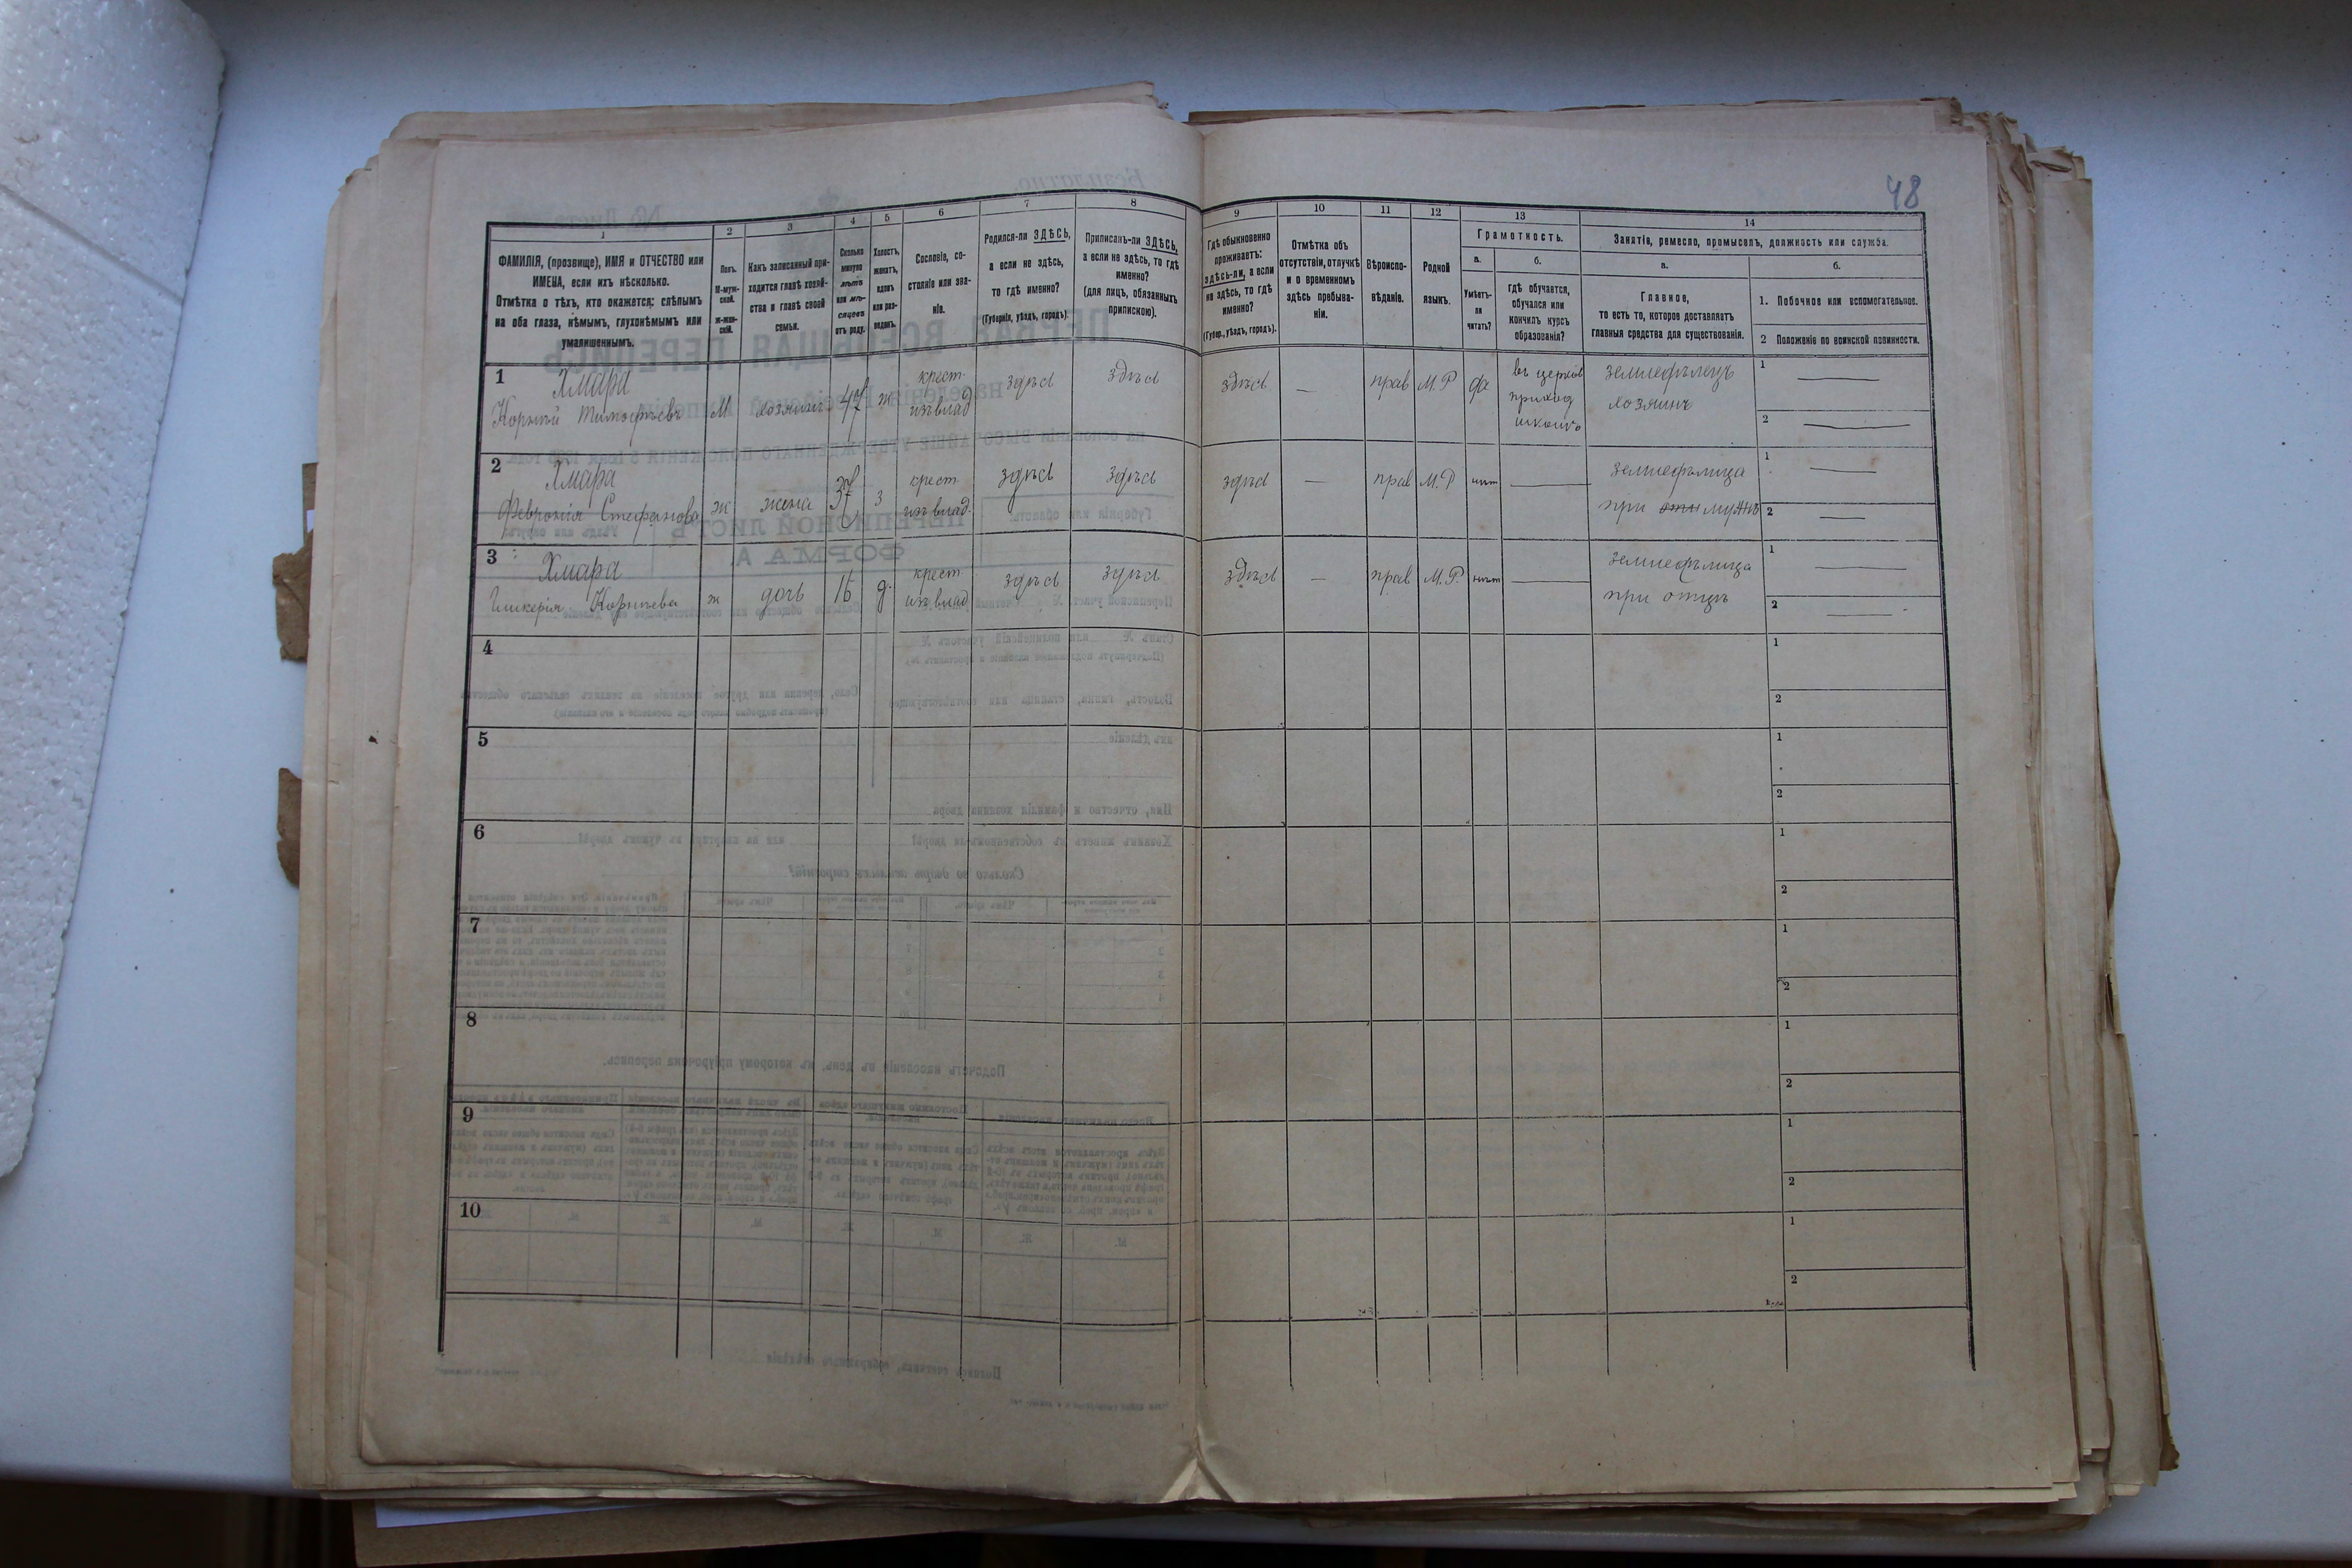 48
1
2
3
4
5
6
7
8
9
10
11
12
13
14
ФАМИЛІЯ, (прозвище), ИМЯ и ОТЧЕСТВО или
ИМЕНА, если ихъ нѣсколько.
Отмѣтка о тѣхъ, кто окажется: слѣпымъ
на оба глаза, нѣмымъ, глухонѣмымъ или
умалишеннымъ.
Полъ.
М-муж-
ской.
ж-жен-
скій.
Какъ записанный при-
ходится главѣ хозяй-
ства и главѣ своей
семьи.
Сколько
минуло
лѣтъ
или мѣ-
сяцевъ
отъ роду.
Холостъ,
женатъ,
вдовъ
или раз-
веденъ.
Сословіе, со-
стояніе или зва-
ніе.
Родился-ли ЗДѢСЬ,
а если не здѣсь,
то гдѣ именно?
(Губернія, уѣздъ, городъ).
Приписанъ-ли ЗДѢСЬ,
а если не здѣсь, то гдѣ
именно?
(для лицъ, обязанныхъ
припискою).
Гдѣ обыкновенно
проживаетъ:
здѣсь-ли, а если
не здѣсь, то гдѣ
именно?
(Губер., уѣздъ, городъ).
Отмѣтка объ
отсутствіи, отлучкѣ
и о временномъ
здѣсь пребыва-
ніи.
Вѣроиспо-
вѣданіе.
Родной
языкъ.
Грамотность.
а.
б.
Умѣетъ-
ли
читать?
гдѣ обучается,
обучался или
кончилъ курсъ
образованія?
Занятія, ремесло, промыселъ, должность или служба.
а.
б.
Главное,
то есть то, которое доставляетъ
главныя средства для существованія.
1. Побочное или вспомогательное.
2 Положеніе по воинской повинности.
1
Хмара
Корній Тимофѣевъ
М
хозяинъ
47
ж
крест.
изъ влад
здѣсь
здѣсь
здѣсь
—
прав
М.Р
въ церков
приход
школѣ
земледѣлецъ
хозяинъ
1
2
2
Хмара
Февронія Стефанова
ж
жена
37
з
крест.
изъ влад.
здѣсь
здѣсь
здѣсь
—
прав
М.Р
нѣт
земледѣлица
при мужѣ
1
2
3
Хмара
Гликерія Корніева
ж
дочь
16
д.
крест.
изъ влад
здѣсь
здѣсь
здѣсь
—
прав
М.Р.
нѣт
земледѣлица
при отцѣ
1
2
4
1
2
5
1
2
6
1
2
7
1
2
8
1
2
9
1
2
10
1
2